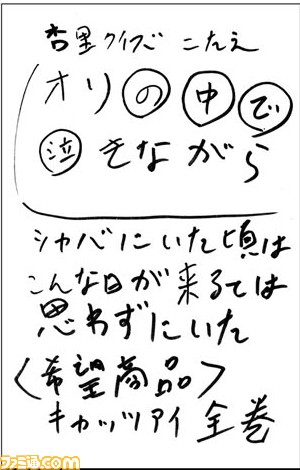 杏里クイズ こたえ
オリの中で
泣きながら
シャバにいた頃は
こんな日が来るては
思わずにいた
〈希望商品〉
キャッツアイ 全巻
ファミ通.com